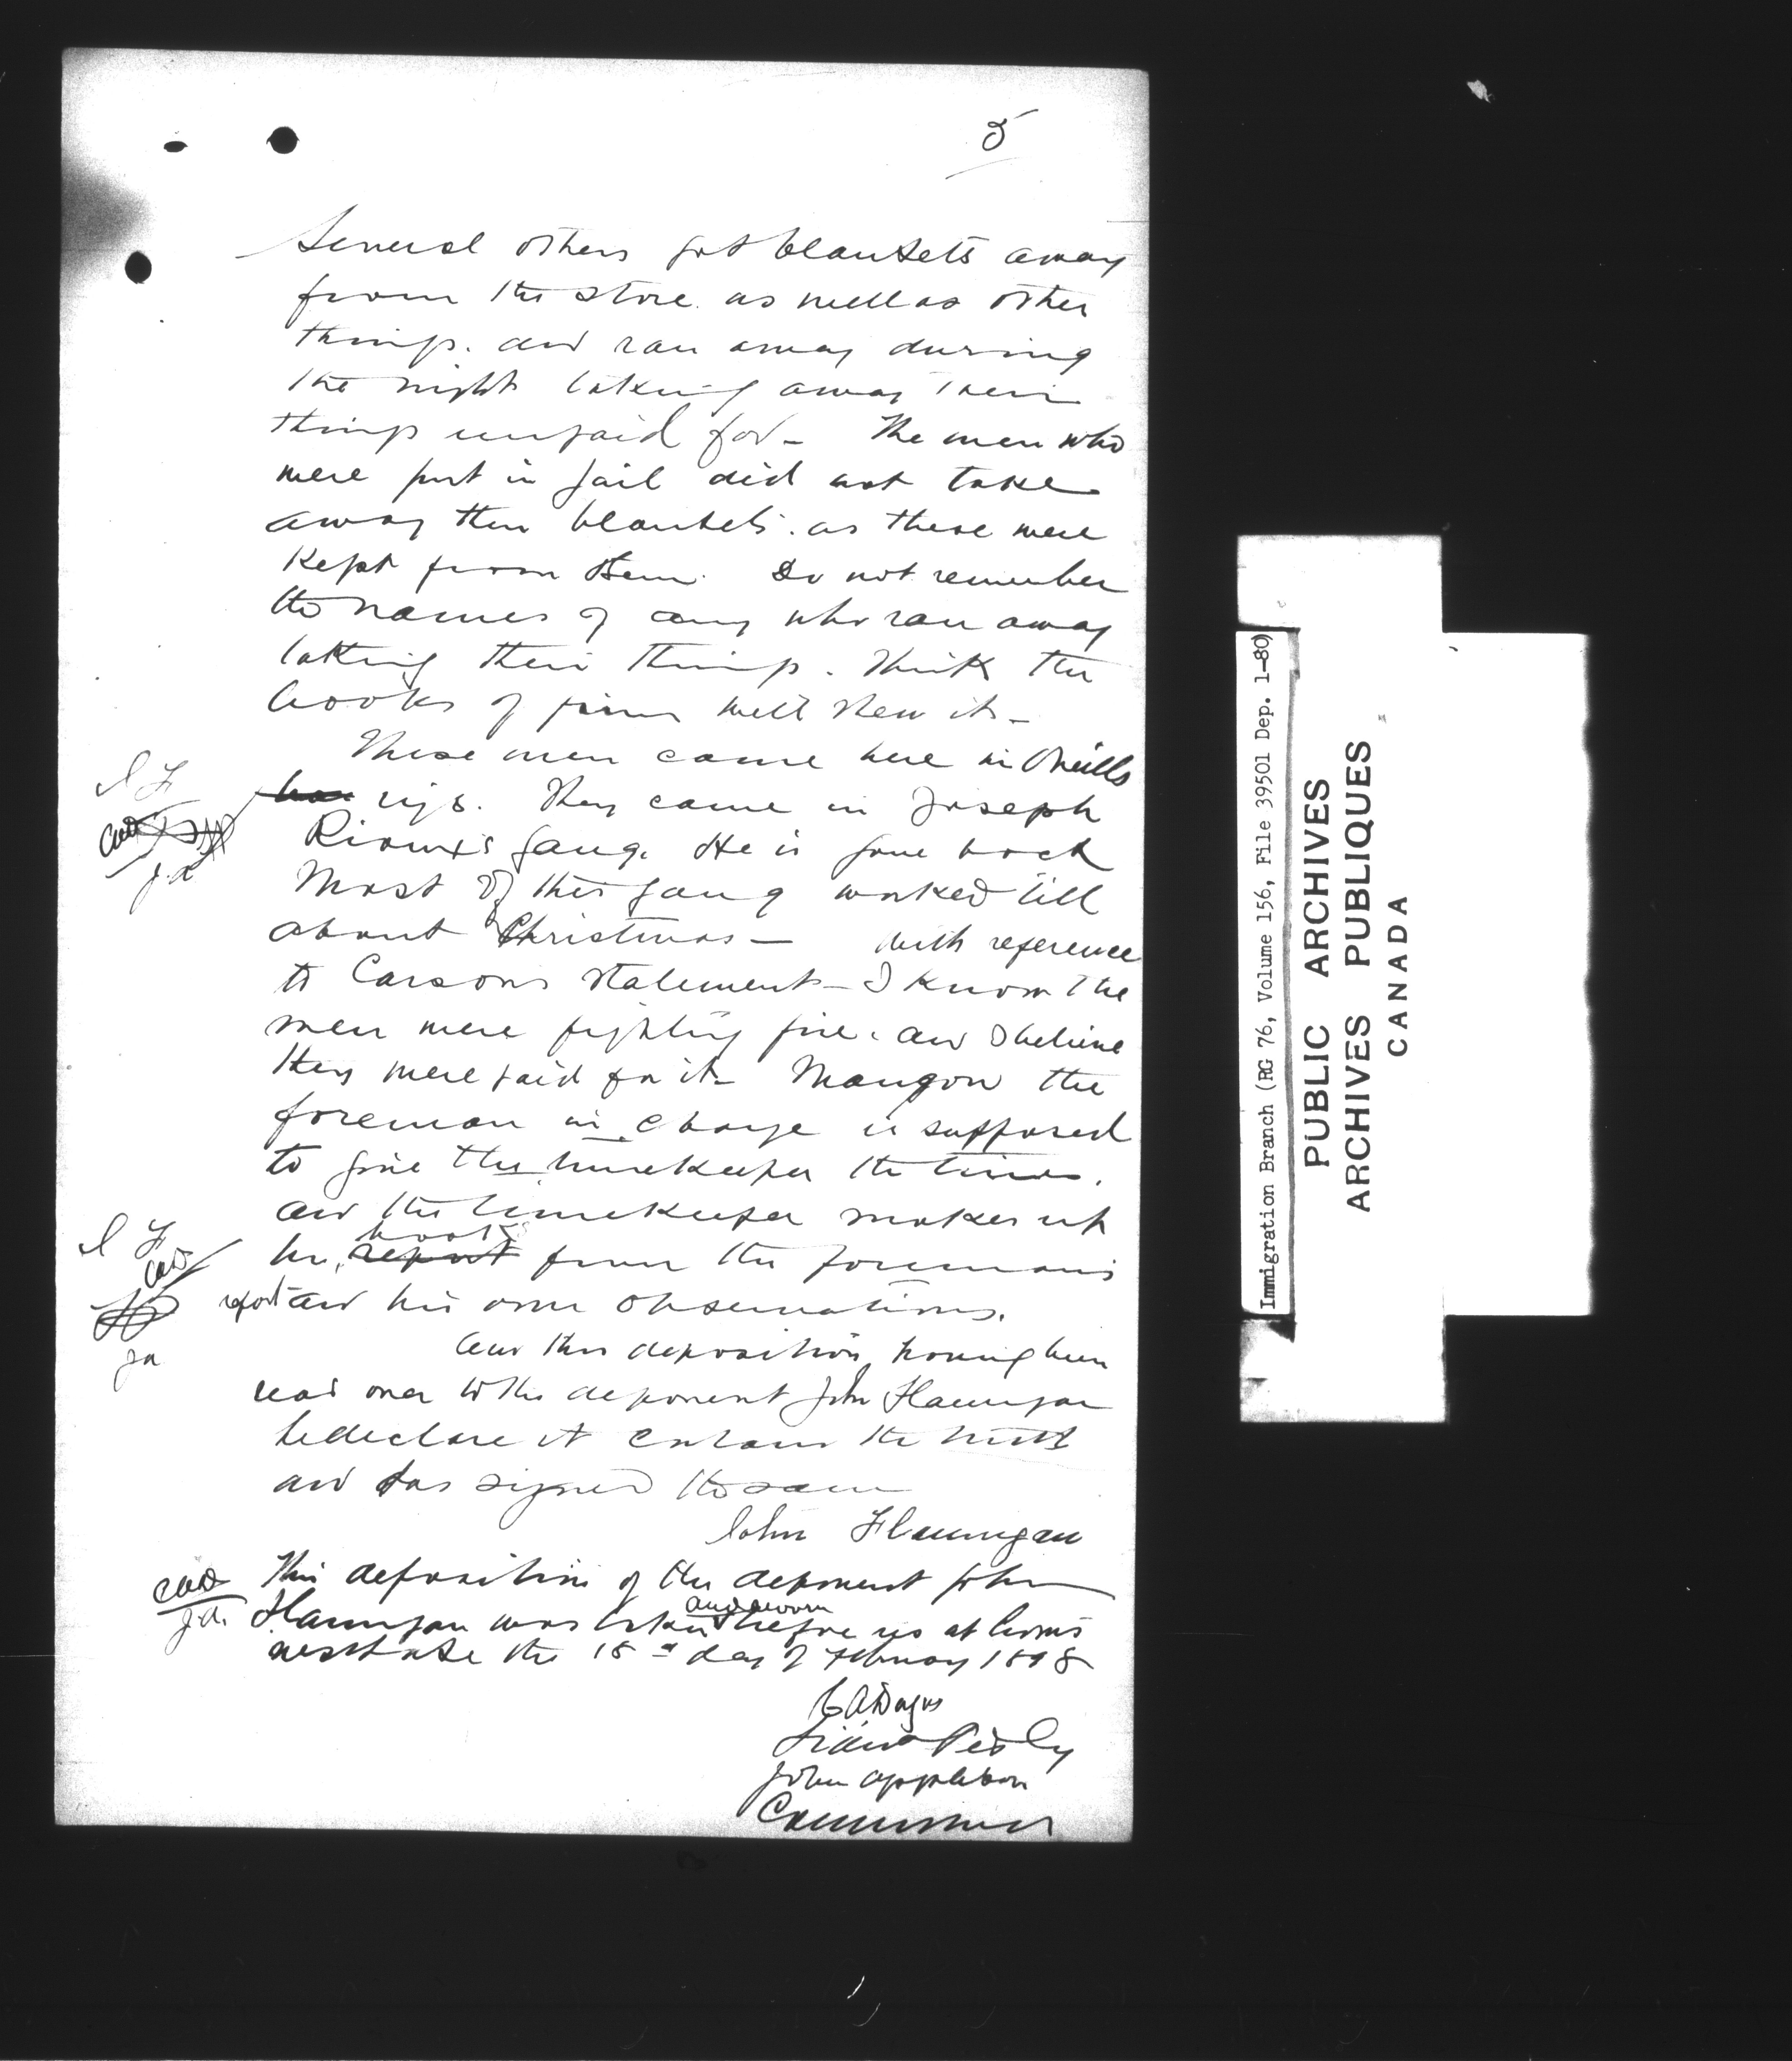 5
Several others got blankets away
from the store. as well as other
things. and ran away during
the night taking away their
things unpaid for - The men who
were put in jail did not take
away their blankets. as these were
kept from them. Do not remember
the names of any who ran away
taking their things. Think the
books of firm will shew it -
These men came here in O'neills
rigs. They came in Joseph
Rioux's gang. He is gone back
Most of this gang worked till
about Christmas - With reference
to Carsons statement - I know the
men were fighting fire. and I believe
they were paid for it - Mangon the
foreman in charge is supposed
to give the timekeeper the time.
and the timekeeper makes up
books
his report from the foremans
report and his own observations.
And this deposition having been
read over to the deponent John Flannigan
he declare it contains the truth
and has signed the same
John Flannigan
This deposition of the deponent John
and sworn
Flannigan was taken before us at Crows
nest Lake the 18th day of February 1898
C A Dugas
John Appleton
Commissioners
J.A.
J.A.
J.A.
Immigration Branch (RG 76, Volume 156, File 39501 Dep. 1-80)
PUBLIC ARCHIVES
ARCHIVES PUBLIQUES
CANADA